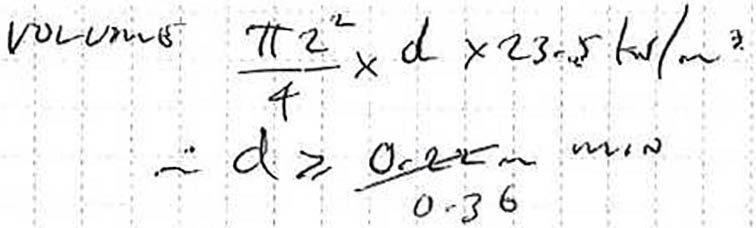 VOLUME π2²/4 × d × 23.5 kN/m³
∴ d ≥ 0.25m min
0.36